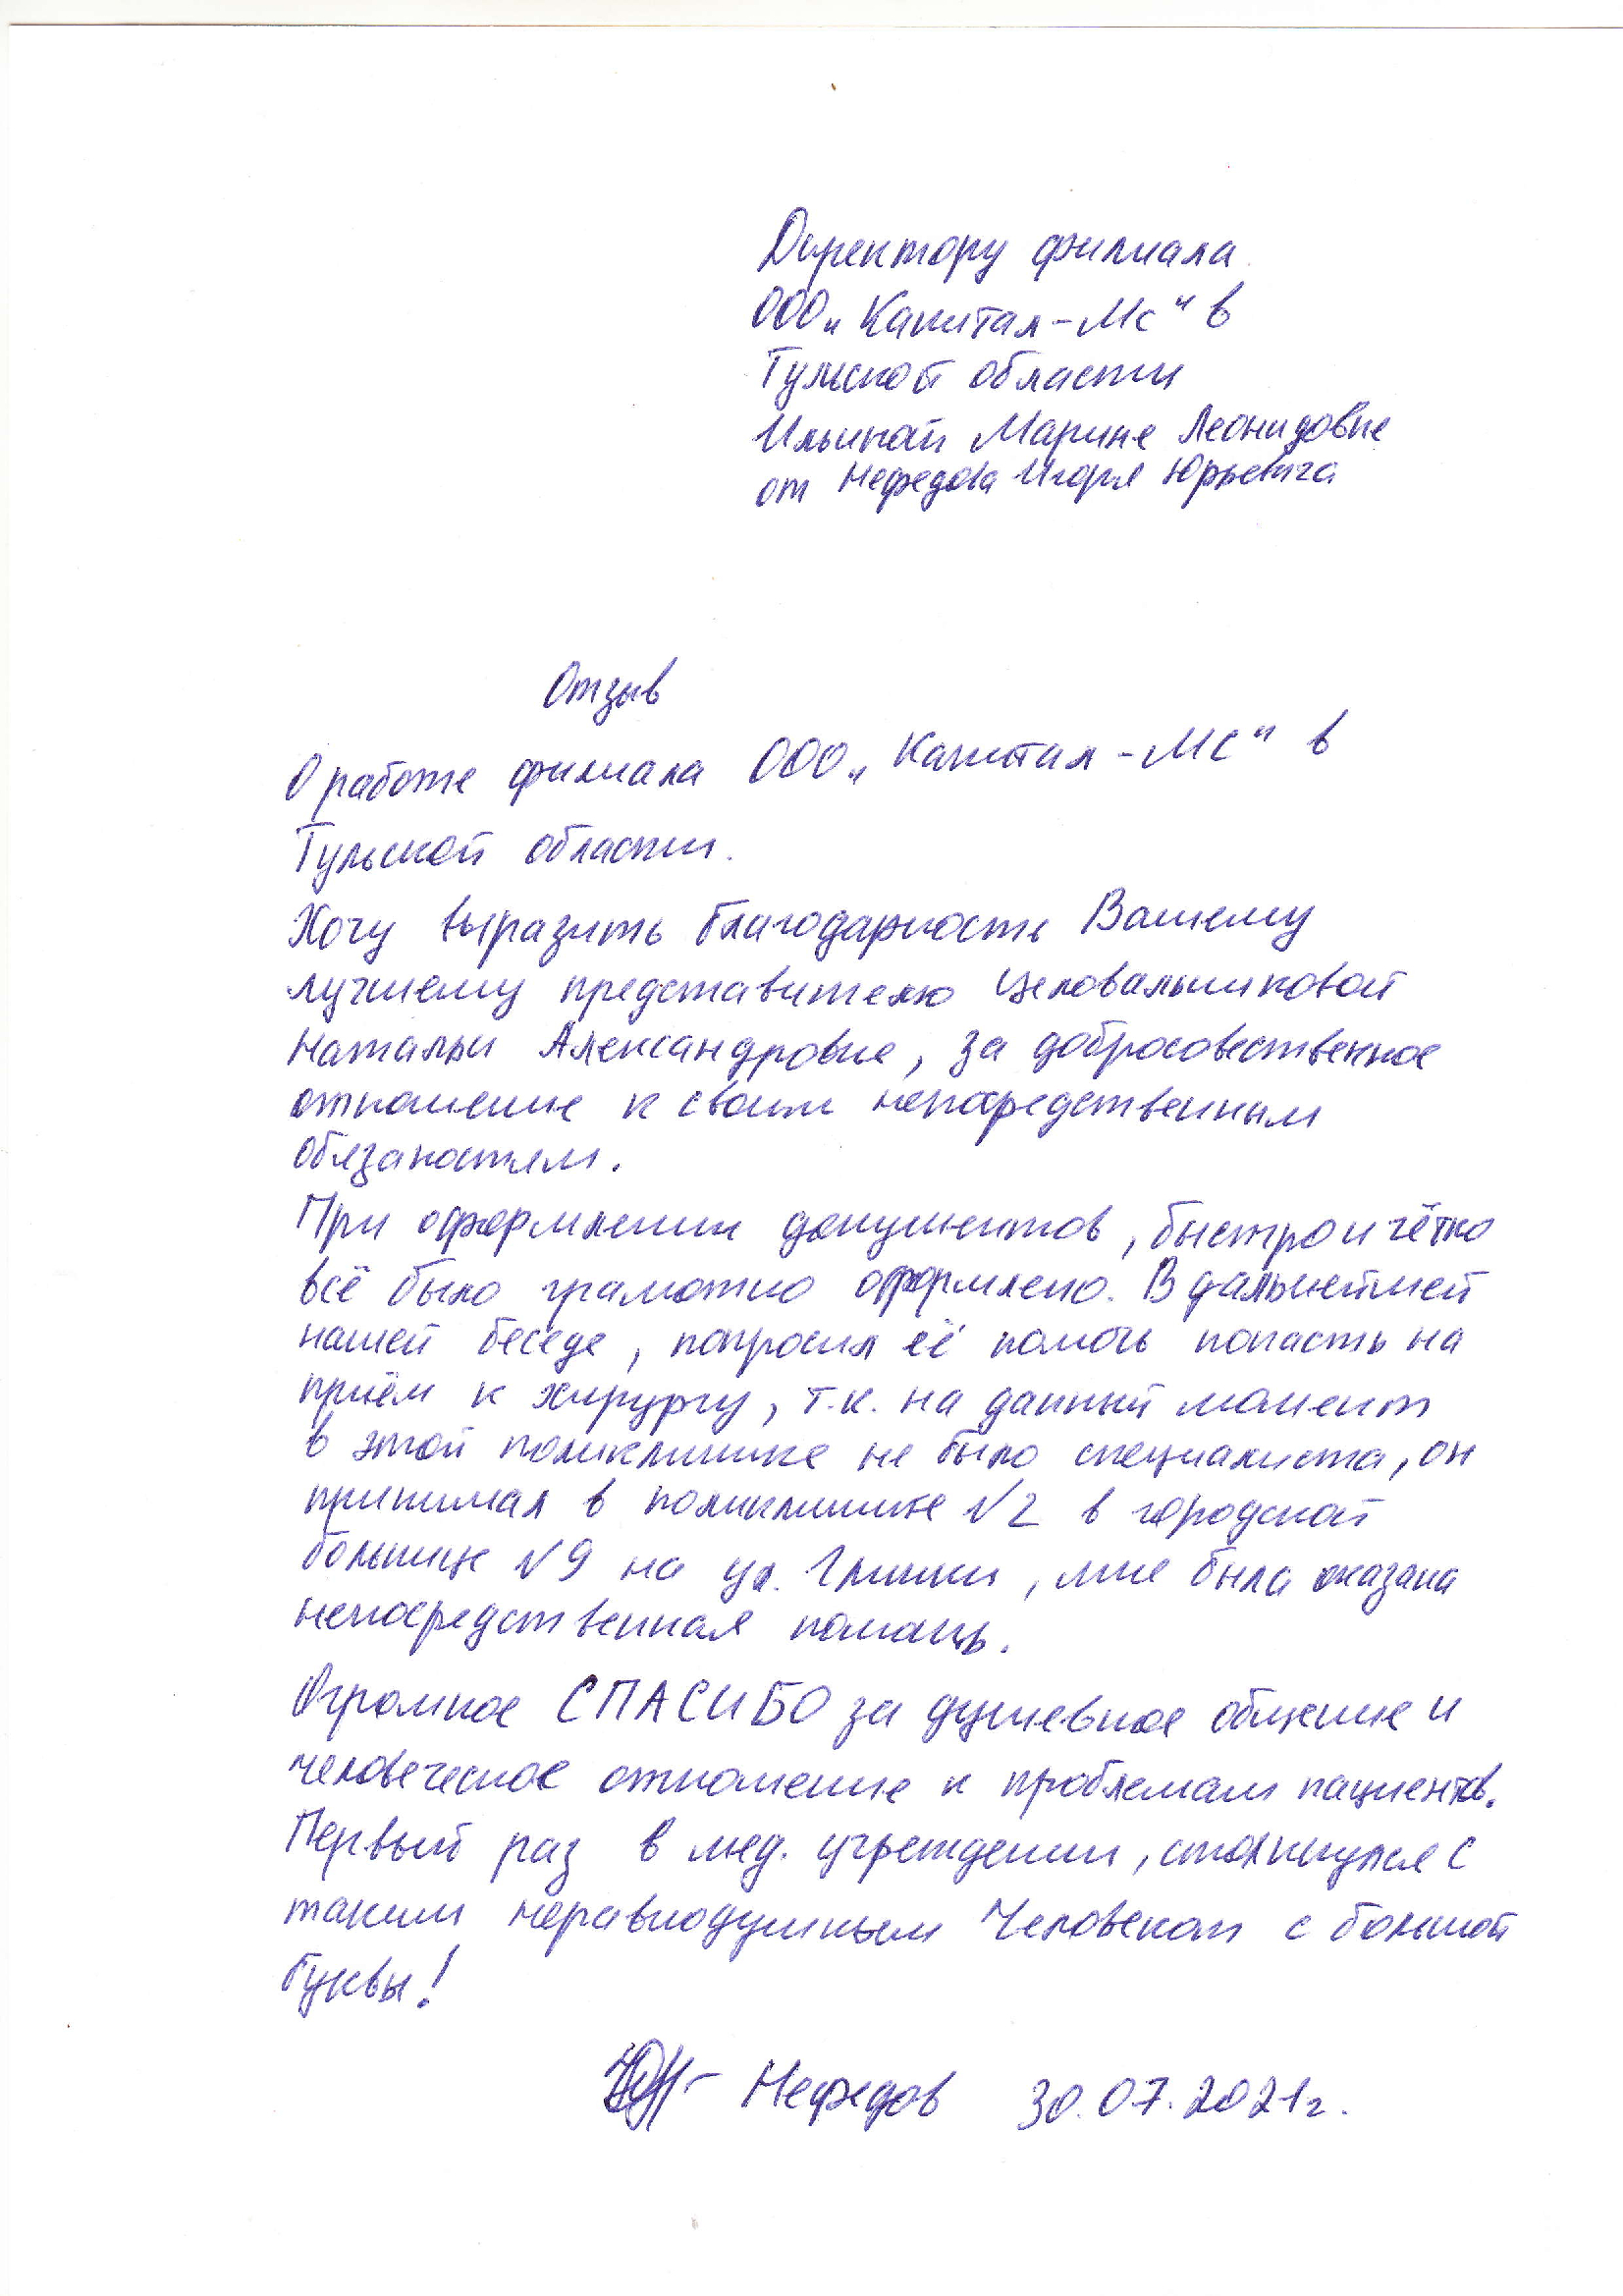 Директору филиала
ООО „Капитал-Мс" в
Тульской области
Ильиной Марине Леонидовне
от Нефедова Игоря Юрьевича
Отзыв
О работе филиала ООО „Капитал-МС" в
Тульской области.
Хочу выразить благодарность Вашему
лучшему представителю Целовальниковой
Натальи Александровне, за добросовестное
отношение к своим непосредственным
обязаностям.
При оформлении документов, быстро и чётко
всё было грамотно оформлено. В дальнейшей
нашей беседе, попросил её помочь попасть на
приём к хирургу, т.к. на данный момент
в этой поликлинике не было специалиста, он
принимал в поликлинике N2 в городской
больнице N9 на ул. Глинки, мне была оказана
непосредственная помощь.
Огромное СПАСИБО за душевное общение и
человеческое отношение к проблемам пациентов.
Первый раз в мед. учреждении, столкнулся с
таким неравнодушным Человеком с большой
буквы!
Нефедов 30.07.2021г.